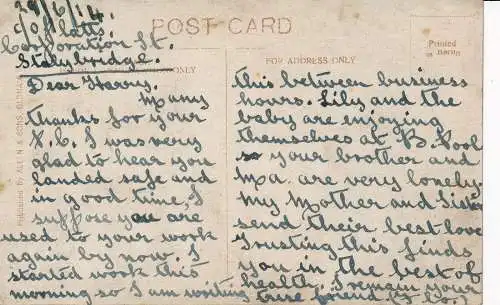 29/6/14
POST CARD
Printed
in
Corporation St.
Stalybridge.
ONLY
FOR ADDRESS ONLY
Dear Harry,
Many
thanks for your
P.C. I was very
glad to hear you
landed safe and
in good time, I
suppose you are
used to your work
again by now. I
started work this
morning so I am writing
this between business
hours. Lily and the
baby are enjoying
themselves at B.Pool
so your brother and
Ma. are very lonely.
My Mother and Sister
send their best love
Trusting this finds
you in the best of
health, I remain your
true
Published by ALLEN & SONS,